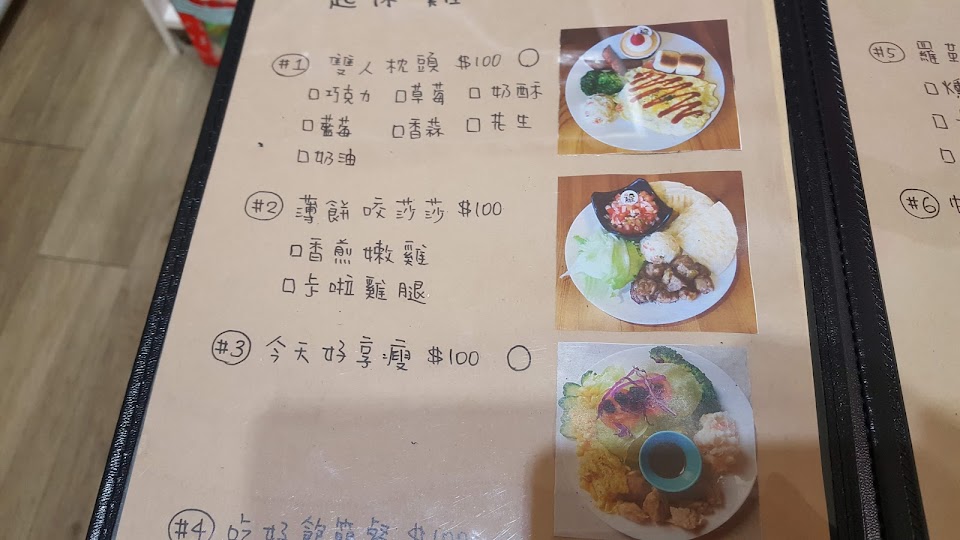 #1 雙人枕頭 $100
口巧克力 口草莓 口奶酥
口藍莓 口香蒜 口花生
口奶油
#2 薄餅咬莎莎 $100
口香煎嫩雞
口卡啦雞腿
#3 今天好享瘦 $100
#4 吃好飽節餐 $100
#5 羅
#6